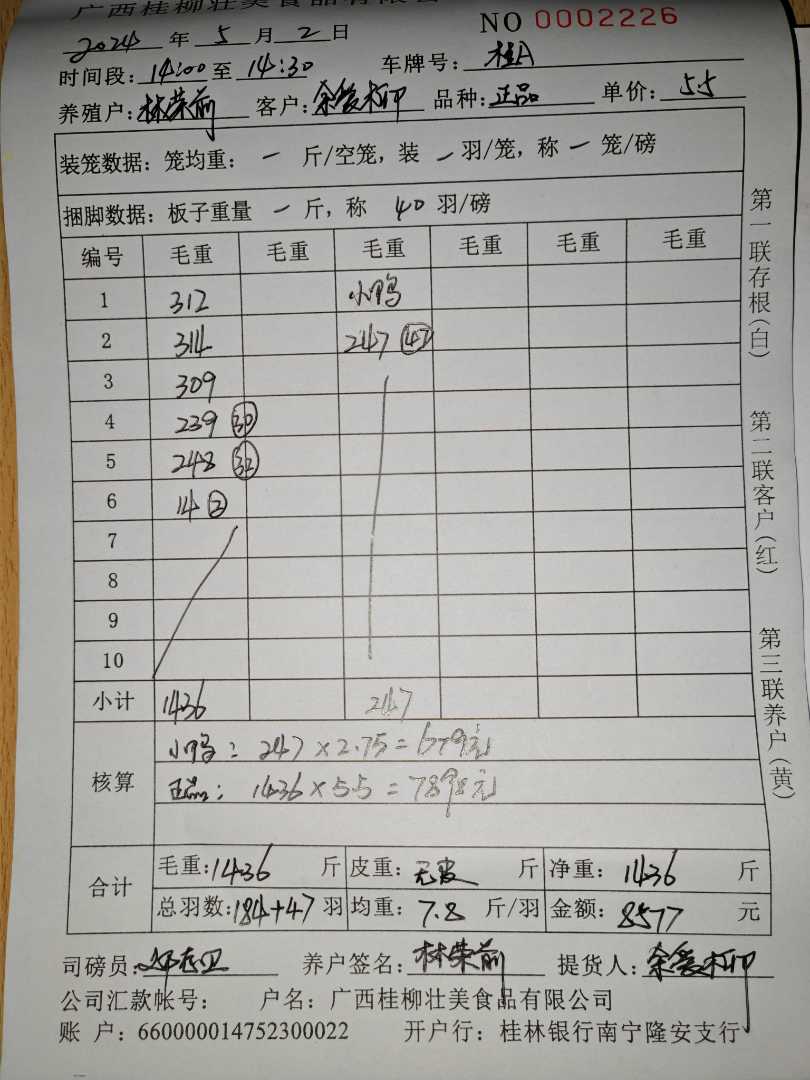 广西桂柳壮美食品有限公
NO 0002226
2024 年 5 月 2 日
时间段: 14:00 至 14:30 车牌号: 桂A
养殖户: 林荣前 客户: 余爱柳 品种: 正品 单价: 5.5
装笼数据: 笼均重: 一 斤/空笼, 装 一 羽/笼, 称 一 笼/磅
捆脚数据: 板子重量 一 斤, 称 40 羽/磅
编号 毛重 毛重 毛重 毛重 毛重 毛重
1 312 小鸭
2 314 247 (47)
3 309
4 239 (30)
5 248 (32)
6 14 (2)
7
8
9
10
小计 1436 247
核算
小鸭: 247×2.75=679元
正品: 1436×5.5=7898元
合计
毛重: 1436 斤 皮重: 无皮 斤 净重: 1436 斤
总羽数: 184+47 羽 均重: 7.8 斤/羽 金额: 8577 元
司磅员: 养户签名: 林荣前 提货人: 余爱柳
公司汇款帐号: 户名: 广西桂柳壮美食品有限公司
账 户: 660000014752300022 开户行: 桂林银行南宁隆安支行
第一联存根(白)
第二联客户(红)
第三联养户(黄)